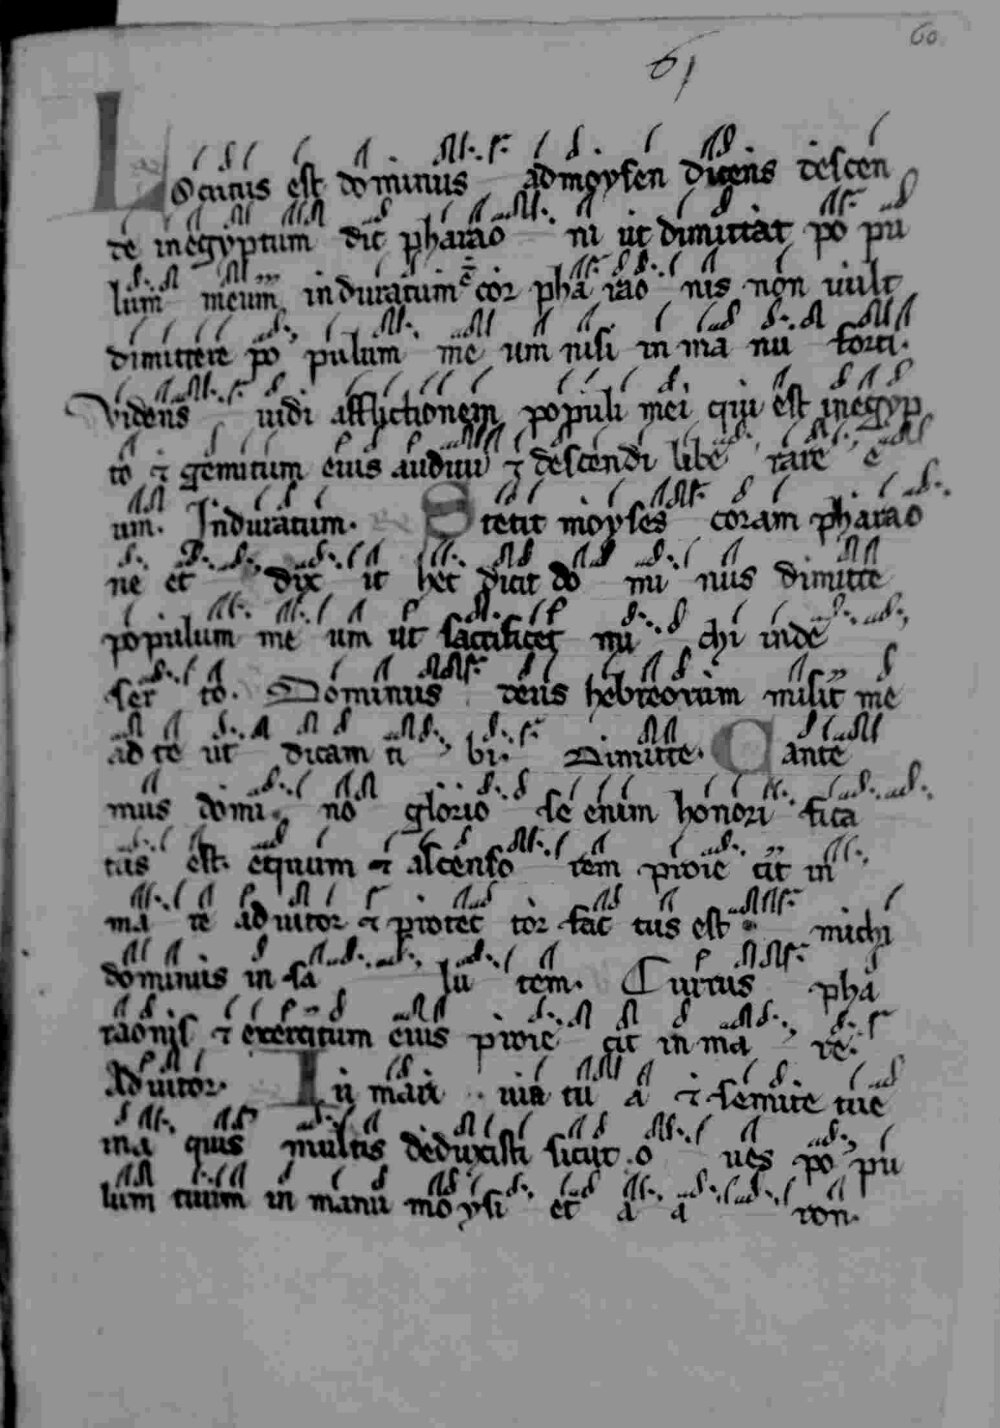 60
61
Locutus est dominus ad moysen dicens descen
de in egyptum dic pharao ni ut dimittat po pu
lum meum induratum ē cor pha rao nis non uult
dimittere po pulum me um nisi in ma nu forti.
Videns uidi afflictionem populi mei qui est in egyp
to ⁊ gemitum eius audiui ⁊ descendi libe rare e
um. Induratum. Stetit moyses coram pharao
ne et dix it hec dicit do mi nus dimitte
populum me um ut sacrificet mi chi in de
ser to. Dominus deus hebreorum misit me
ad te ut dicam ti bi. Dimitte. Cante
mus domi no glorio se enim honori fica
tus est. equum ⁊ ascenso rem proie cit in
ma re adiutor ⁊ protec tor fac tus est michi
dominus in sa lu tem. Currus pha
raonis ⁊ exercitum eius proie cit in ma re.
Adiutor. In mari uia tu a ⁊ semite tue
in a quis multis deduxisti sicut o ues po pu
lum tuum in manu moysi et a a ron.